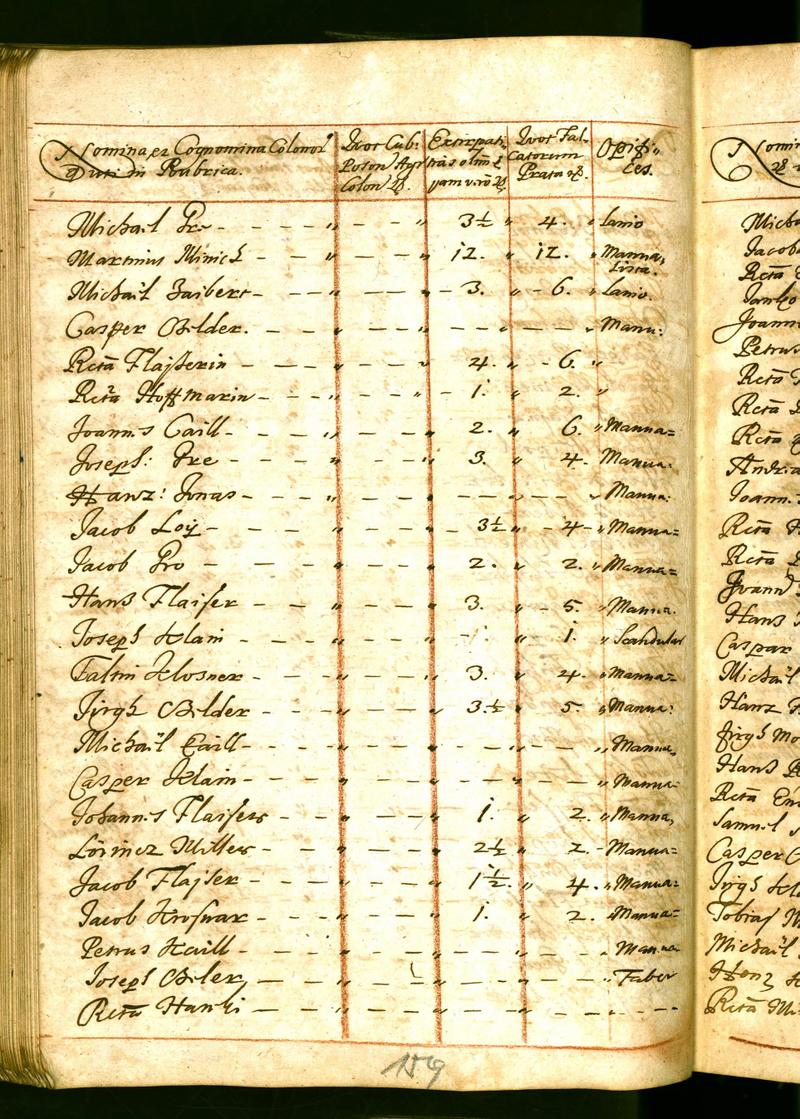 Nomina et Cognomina Colonor
Duti in Rubrica.
Qvot Cub:
Poson
Colon
Extirpati
olim
jam v.rò
Qvot Fal-
catorum
Prata
Opifi-
ces.
Michael Pre - - - - " - - - " 3½ " 4. " Lanio
Martinus Minich - - - " - - - " 12. " 12. " Manua-
lista.
Michael Saibert - - - " - - - " - 3. " - 6. " Lanio.
Casper Bilder. - - - " - - - " - - - " - - " Manu:
Rcta Flajserin - - - " - - - " 4. " - 6. "
Rcta Hoffmarin - - - " - - - " - 1. " 2. "
Joannes Caill - - - " - - - " 2. " 6. " Manua=
Joseph: Pre - - - - " - - - " 3. " 4. Manua:
Hanz: Jonas - - - " - - - " - - - " - - " Manua:
Jacob Loÿ - - - " - - - " - 3½ " - 4 - " Manua=
Jacob Pro - - - " - - - " 2. " 2. " Manua=
Hans Flaiser - - - " - - - " 3. " - 5. " Manua.
Joseph Klain - - - " - - - " - 1. " 1. " Scandular
Faltin Klosner - - - " - - - " 3. " 4. " Manua=
Jirgh Bilder - - - " - - - " 3.½ " 5. " Manua:
Michaël Caill - - - " - - - " - - - " - - " Manua,
Casper Klain - - - " - - - " - - - " - - " Manua-
Johannes Flaisers - - " - - - " 1. " 2. " Manua,
Lörincz Millers - - - " - - - " 2½ " 2. - Manua=
Jacob Flajser - - - " - - - " 1½. " 4. " Manua=
Jacob Krosnar - - - " - - - " 1. " 2. " Manua=
Petrus Kaill - - - " - - - " - - - " - - " Manua
Joseph Biler, - - - " - - - " - - - " - - " Faber
Rcta Hanki - - - " - - - " - - - " - - " - - -
159
Jacob
Rcta
Janko
Joann
Petrus
Rcta
Rcta
Rcta
Joann.
Rcta
Rcta
Hans
Caspar
Michaël
Hanz
Jirgh
Hans
Rcta
Samuel
Casper
Jirgh
Tobias
Michaël
Rcta